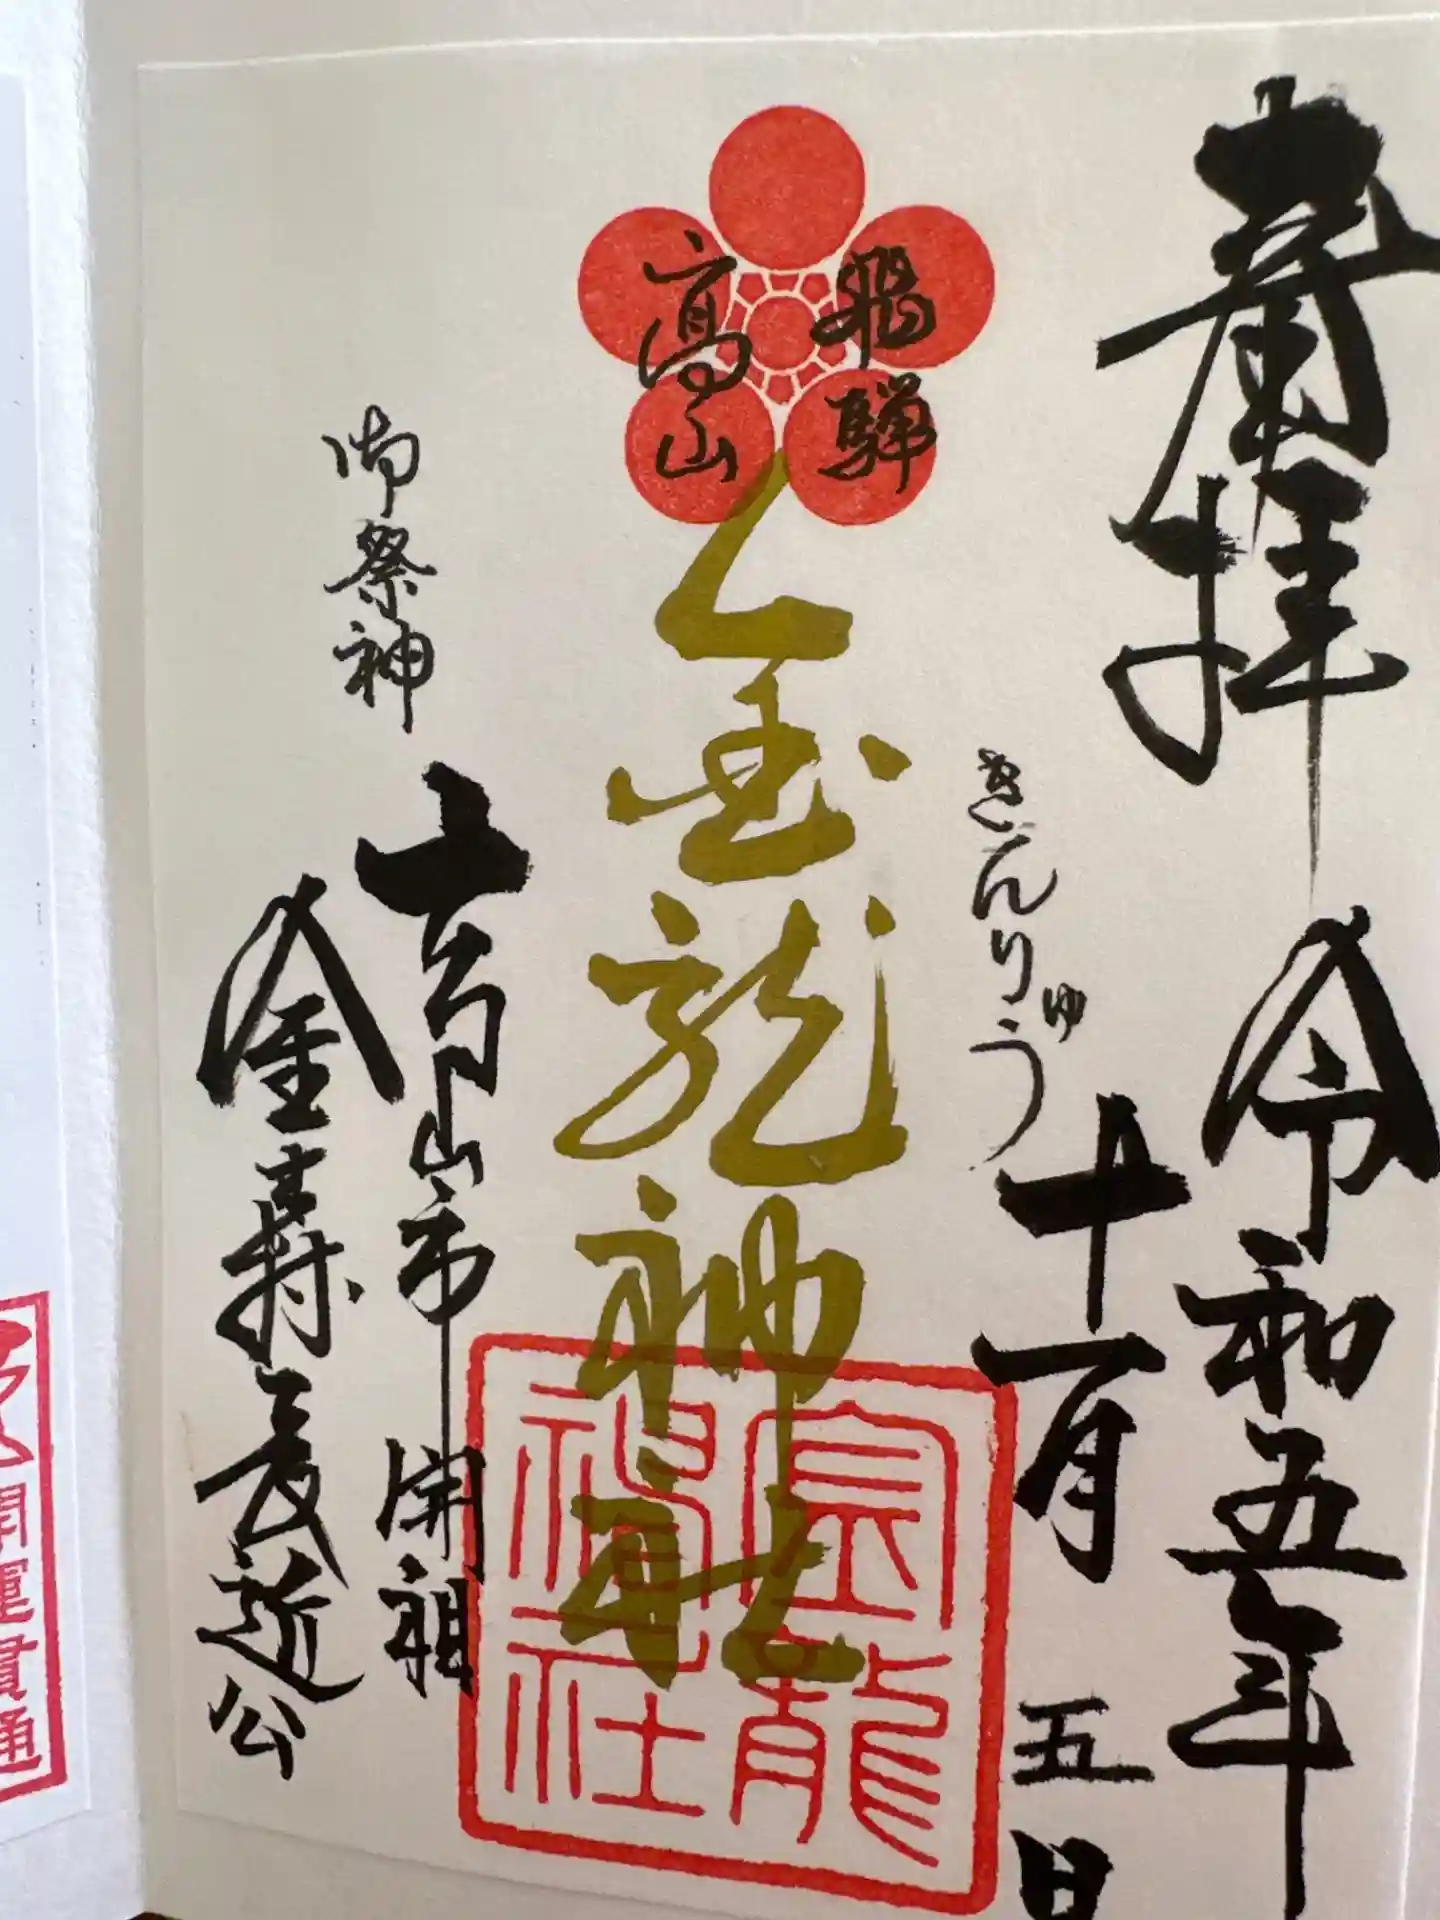 奉拝
令和五年
十一月五日
きんりゅう
飛騨
高山
金龍神社
金龍
神社
御祭神
高山市開祖
金森長近公
開運貫通